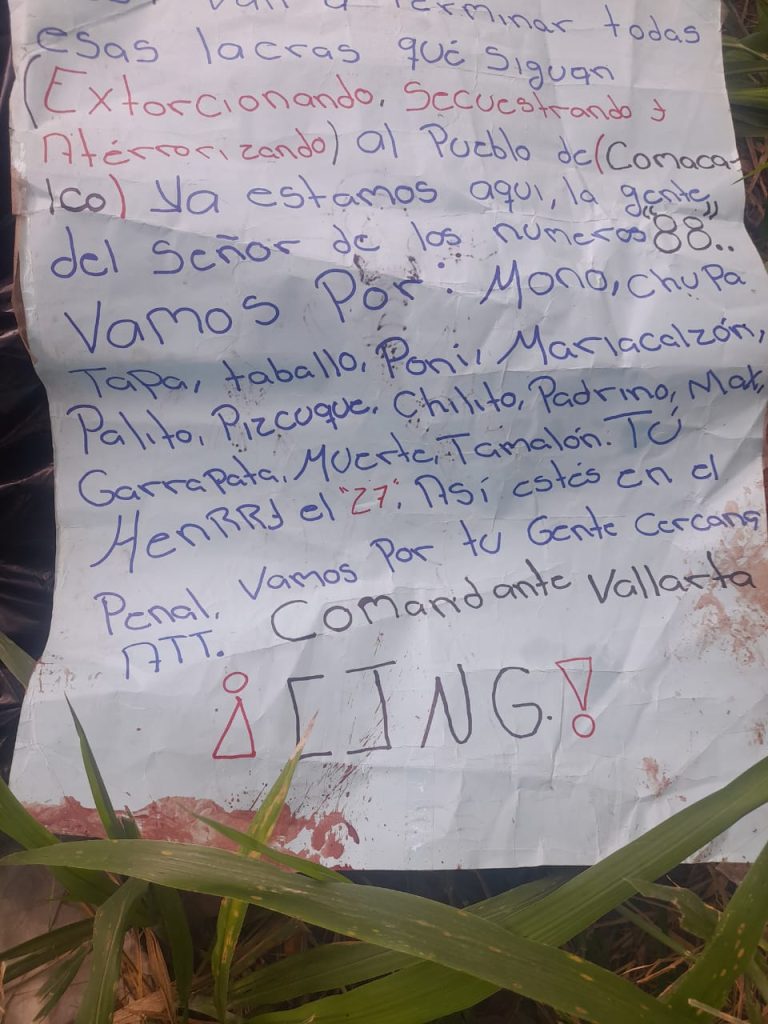 van a terminar todas
esas lacras qué siguan
(Extorcionando, Seccuestrando y
Atérrorizando) al Pueblo de (Comaca-
lco) Ya estamos aqui, la gente
del señor de los numeros "88"..
Vamos Por: Mono, chupa
Tapa, taballo, Poni, Mariacalzón,
Palito, Pizcuque, Chilito, Padrino, Max,
Garrapata, Muerte, Tamalón. Tú
HenRRy el "27". Así estés en el
Penal. Vamos Por tu Gente Cercana
ATT. Comandante Vallarta
¡CJNG.!